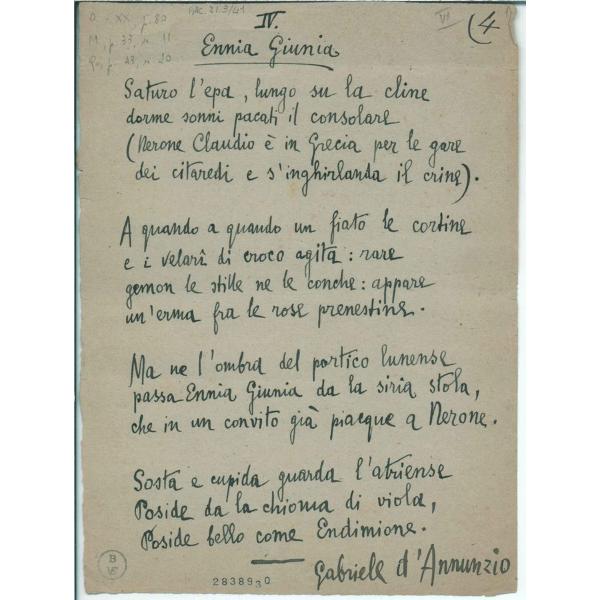 BAC. 21.3/41
IV.
VI
(4
Ennia Giunia
Saturo l'epa, lungo su la cline
dorme sonni pacati il consolare
(Nerone Claudio è in Grecia per le gare
dei citaredi e s'inghirlanda il crine).
A quando a quando un fiato le cortine
e i velarî di croco agita: rare
gemon le stille ne le conche: appare
un'erma fra le rose prenestine.
Ma ne l'ombra del portico lunense
passa Ennia Giunia da la siria stola,
che in un convito già piacque a Nerone.
Sosta e cupida guarda l'atriense
Poside da la chioma di viola,
Poside bello come Endimione.
Gabriele d'Annunzio
283890